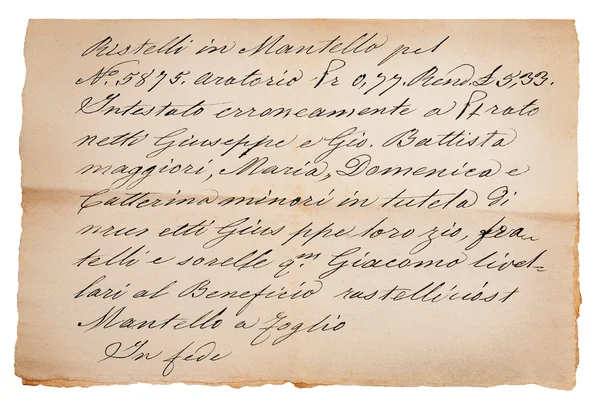 Rustelli in Mantello pel
N.º 5875. Aratorio Pr 0,77. Rend. £ 5,33.
Intestato erroneamente a
netti Giuseppe e Gio. Battista
maggiori, Maria, Domenica e
Catterina minori in tutela di
etti Gius ppe loro zio, fra-
telli e sorelle q.m Giacomo livel-
lari al Beneficio rastelli
Mantello a Foglio
In fede